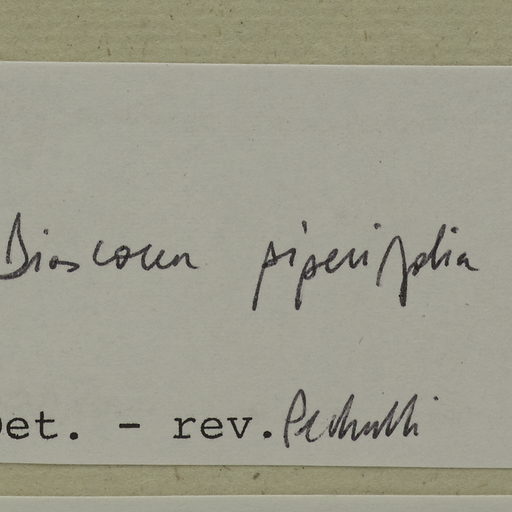 Dioscorea piperifolia
Det. - rev. Pedralli